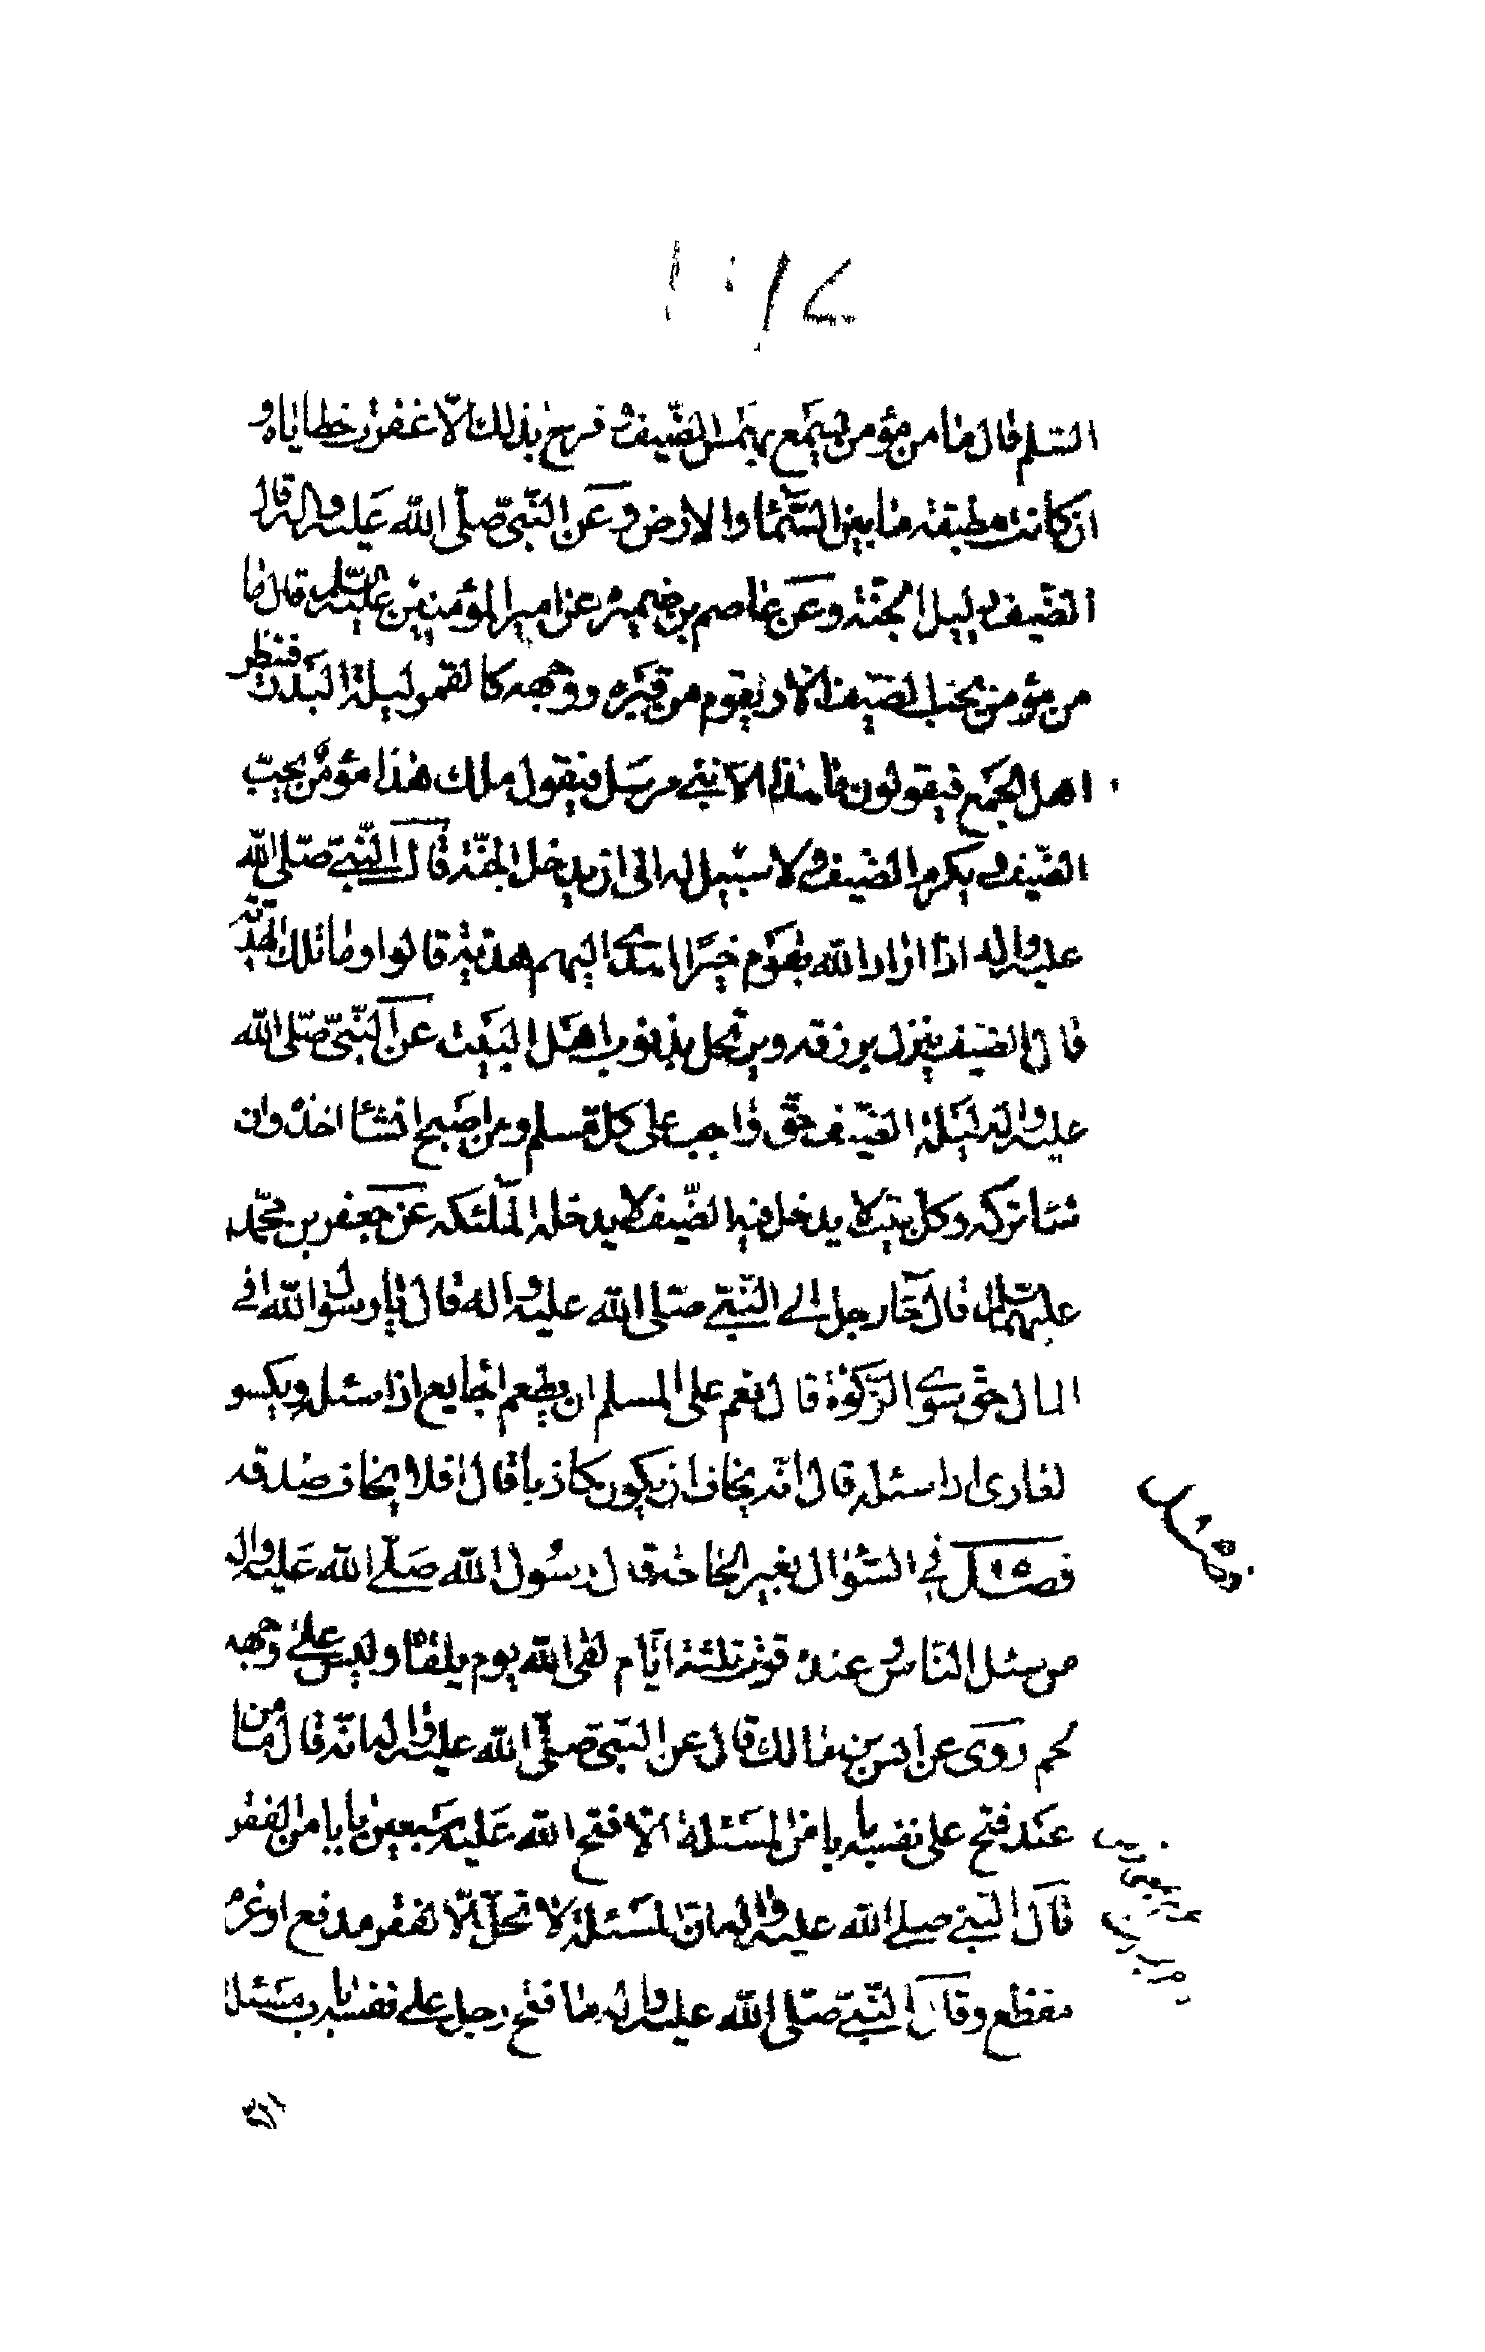 السلم قال ما من مؤمن يسمع بهمس الضيف و فرح بذلك الا غفرت خطاياه و
ان كانت مطبقة ما بين السماء والارض و عن النبي صلى الله عليه واله قال
الضيف دليل الجنة وعن عاصم بن ضميرة عن امير المؤمنين عليه السلم قال ما
من مؤمن يحب الضيف الا و يقوم من قبره و وجهه كالقمر ليلة البدر فينظر
اهل الجمع فيقولون ما هذا الا نبي مرسل فيقول ملك هذا مؤمن يحب
الضيف و يكرم الضيف و لا سبيل له الى ان يدخل الجنة قال النبي صلى الله
عليه واله اذا اراد الله بقوم خيرا اهدى اليهم هدية قالوا وما تلك الهدية
قال الضيف ينزل برزقه ويرتحل بذنوب اهل البيت عن النبي صلى الله
عليه واله ليلة الضيف حق واجب على كل مسلم ومن اصبح انشاء اخذه وان
شاء تركه وكل بيت لا يدخل فيه الضيف لا يدخله الملئكة عن جعفر بن محمد
عليهما السلم قال جاء رجل الى النبي صلى الله عليه واله قال يا رسول الله افي
المال حق سوى الزكوة قال نعم على المسلم ان يطعم الجايع اذا سئله ويكسو
العارى اذا سئله قال انه يخاف ان يكون كاذبا قال افلا يخاف صدقه
فصل في السؤال بغير الحاجة قال رسول الله صلى الله عليه واله
من سئل الناس و عنده قوت ثلثة ايام لقى الله يوم يلقاه وليس على وجهه
لحم روى عن انس بن مالك قال عن النبي صلى الله عليه واله انه قال ما من
عبد فتح على نفسه بابا من المسئلة الا فتح الله عليه سبعين بابا من الفقر
قال النبي صلى الله عليه واله ان المسئلة لا تحل الا لفقر مدقع او غرم
مفظع وقال النبي صلى الله عليه واله ما فتح رجل على نفسه باب مسئلة